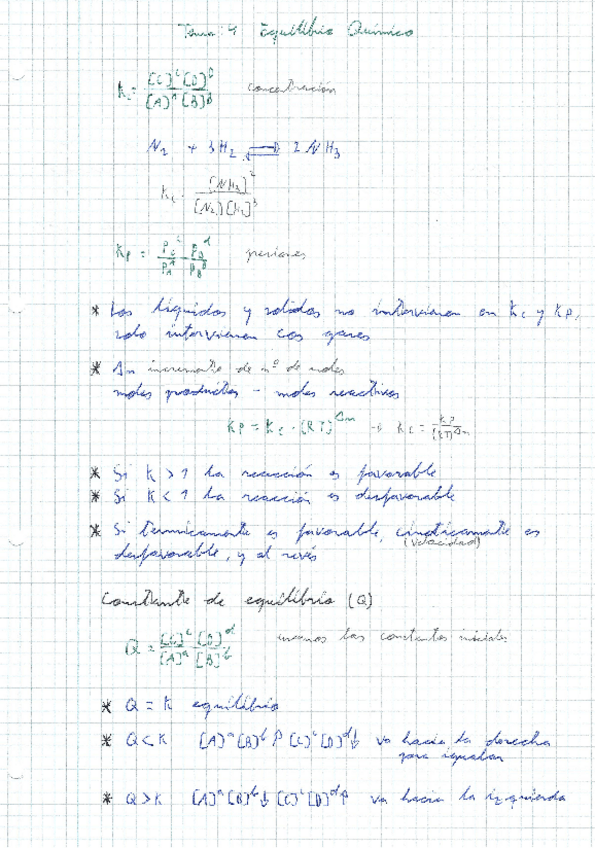 Tema 4 Equilibrio Químico
Kc = [C]^c [D]^D / [A]^A [B]^B concentración
N2 + 3H2 ⇌ 2NH3
Kc = [NH3]^2 / [N2][H2]^3
Kp = P_C^c P_D^d / P_A^A P_B^B presiones
* Los líquidos y solidos no intervienen en Kc y Kp,
solo intervienen los gases
* Δn incremento de nº de moles
moles productos - moles reactivos
Kp = Kc · (RT)^Δn → Kc = Kp / (RT)^Δn
* Si K > 1 la reacción es favorable
* Si K < 1 la reacción es desfavorable
* Si termicamente es favorable, cinéticamente es
(velocidad)
desfavorable, y al revés
Constante de equilibrio (Q)
Q = [C]^c [D]^d / [A]^a [B]^b usamos las constantes iniciales
* Q = K equilibrio
* Q < K [A]^a [B]^b ↑ [C]^c [D]^d ↓ va hacia la derecha
para igualar
* Q > K [A]^a [B]^b ↓ [C]^c [D]^d ↑ va hacia la izquierda